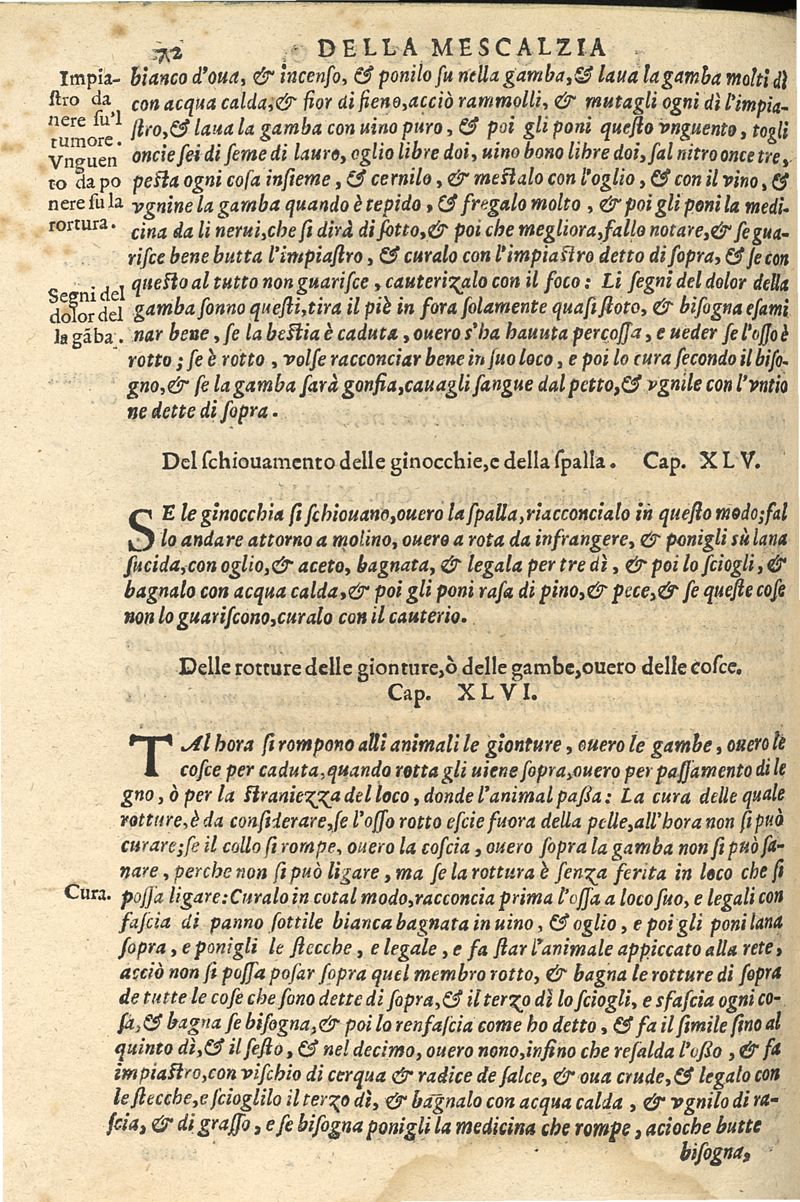 72 DELLA MESCALZIA
Impia-
stro da
nere su'l
tumore.
Vnguen
to da po
nere su la
rortura.
bianco d'oua, & incenso, & ponilo su nella gamba, & laua la gamba molti dì
con acqua calda, & fior di fieno, acciò rammolli, & mutagli ogni dì l'impia-
stro, & laua la gamba con uino puro, & poi gli poni questo vnguento, togli
oncie sei di seme di lauro, oglio libre doi, uino bono libre doi, sal nitro once tre,
pesta ogni cosa insieme, & cernilo, & mestalo con l'oglio, & con il vino, &
vgnine la gamba quando è tepido, & fregalo molto, & poi gli poni la medi-
cina da li nerui, che si dirà di sotto, & poi che megliora, fallo notare, & se gua-
risce bene butta l'impiastro, & curalo con l'impiastro detto di sopra, & se con
questo al tutto non guarisce, cauterizalo con il foco: Li segni del dolor della
Segni del
dolor del
la gãba.
gamba sonno questi, tira il piè in fora solamente quasi stoto, & bisogna esami
nar bene, se la bestia è caduta, ouero s'ha hauuta percossa, e ueder se l'osso è
rotto; se è rotto, volse racconciar bene in suo loco, e poi lo cura secondo il biso-
gno, & se la gamba sarà gonfia, cauagli sangue dal petto, & vgnile con l'vntio
ne dette di sopra.
Del schiouamento delle ginocchie, e della spalla. Cap. XLV.
SE le ginocchia si schiouano, ouero la spalla, riacconcialo in questo modo; fal
lo andare attorno a molino, ouero a rota da infrangere, & ponigli sù lana
sucida, con oglio, & aceto, bagnata, & legala per tre dì, & poi lo sciogli, &
bagnalo con acqua calda, & poi gli poni rasa di pino, & pece, & se queste cose
non lo guariscono, curalo con il cauterio.
Delle rotture delle gionture, ò delle gambe, ouero delle cosce.
Cap. XLVI.
TAl hora si rompono alli animali le gionture, ouero le gambe, ouero le
cosce per caduta, quando rotta gli uiene sopra, ouero per passamento di le
gno, ò per la straniezza del loco, donde l'animal passa: La cura delle quale
rotture, è da considerare, se l'osso rotto escie fuora della pelle, all'hora non si può
curare; se il collo si rompe, ouero la coscia, ouero sopra la gamba non si può sa-
nare, perche non si può ligare, ma se la rottura è senza ferita in loco che si
Cura.
possa ligare: Curalo in cotal modo, racconcia prima l'ossa a loco suo, e legali con
fascia di panno sottile bianca bagnata in uino, & oglio, e poi gli poni lana
sopra, e ponigli le stecche, e legale, e fa star l'animale appiccato alla rete,
acciò non si possa posar sopra quel membro rotto, & bagna le rotture di sopra
de tutte le cose che sono dette di sopra, & il terzo dì lo sciogli, e sfascia ogni co-
sa, & bagna se bisogna, & poi lo renfascia come ho detto, & fa il simile sino al
quinto dì, & il sesto, & nel decimo, ouero nono, infino che resalda l'osso, & fa
impiastro, con vischio di cerqua & radice de salce, & oua crude, & legalo con
le stecche, e scioglilo il terzo dì, & bagnalo con acqua calda, & vgnilo di ra-
scia, & di grasso, e se bisogna ponigli la medicina che rompe, acioche butte
bisogna,